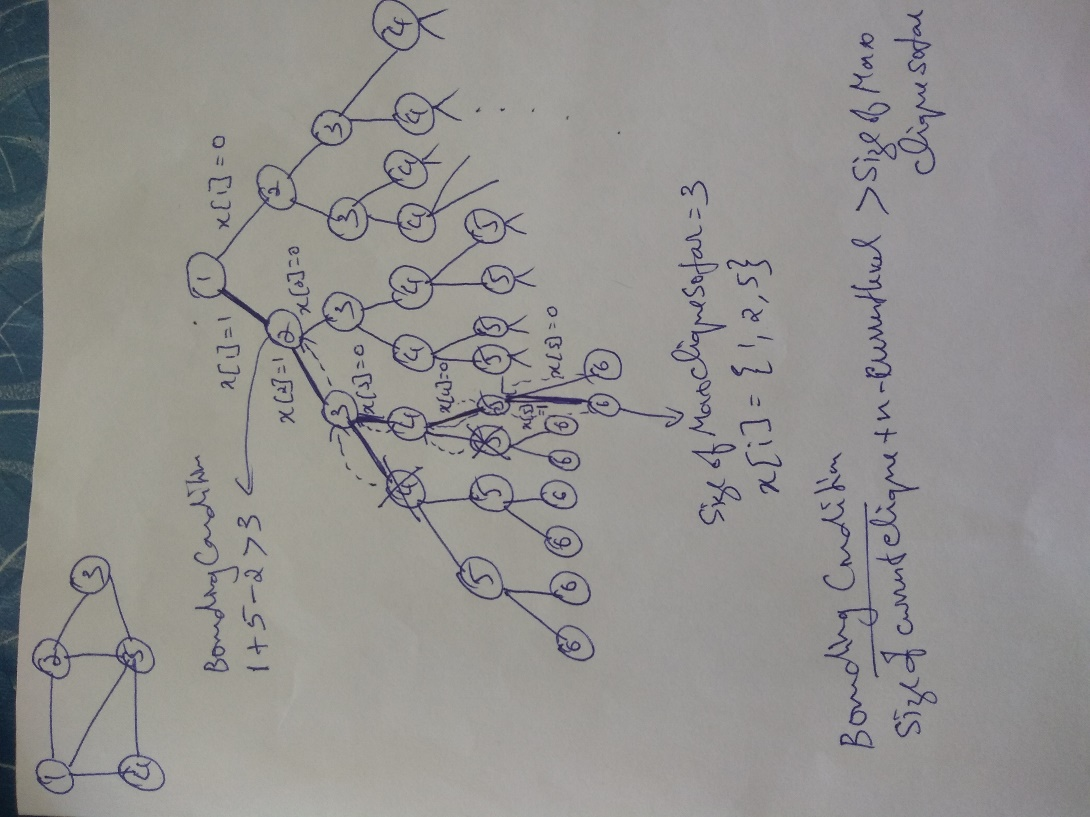 1 2 3
4 5
Bounding Condition
1+5-2>3
1
x[1]=1 x[1]=0
2 2
x[2]=1 x[2]=0
3 3 3 3
x[3]=0
4 4 4 4 4 4 4 4
x[4]=0
5 5 5 5 5 5 5 5
x[5]=1 x[5]=0
6 6 6 6 6 6 6 6
Size of Max Clique Sofar = 3
x[i] = {1, 2, 5}
Bounding Condition
Size of current clique + n - Current level > Size of Max
Clique Sofar